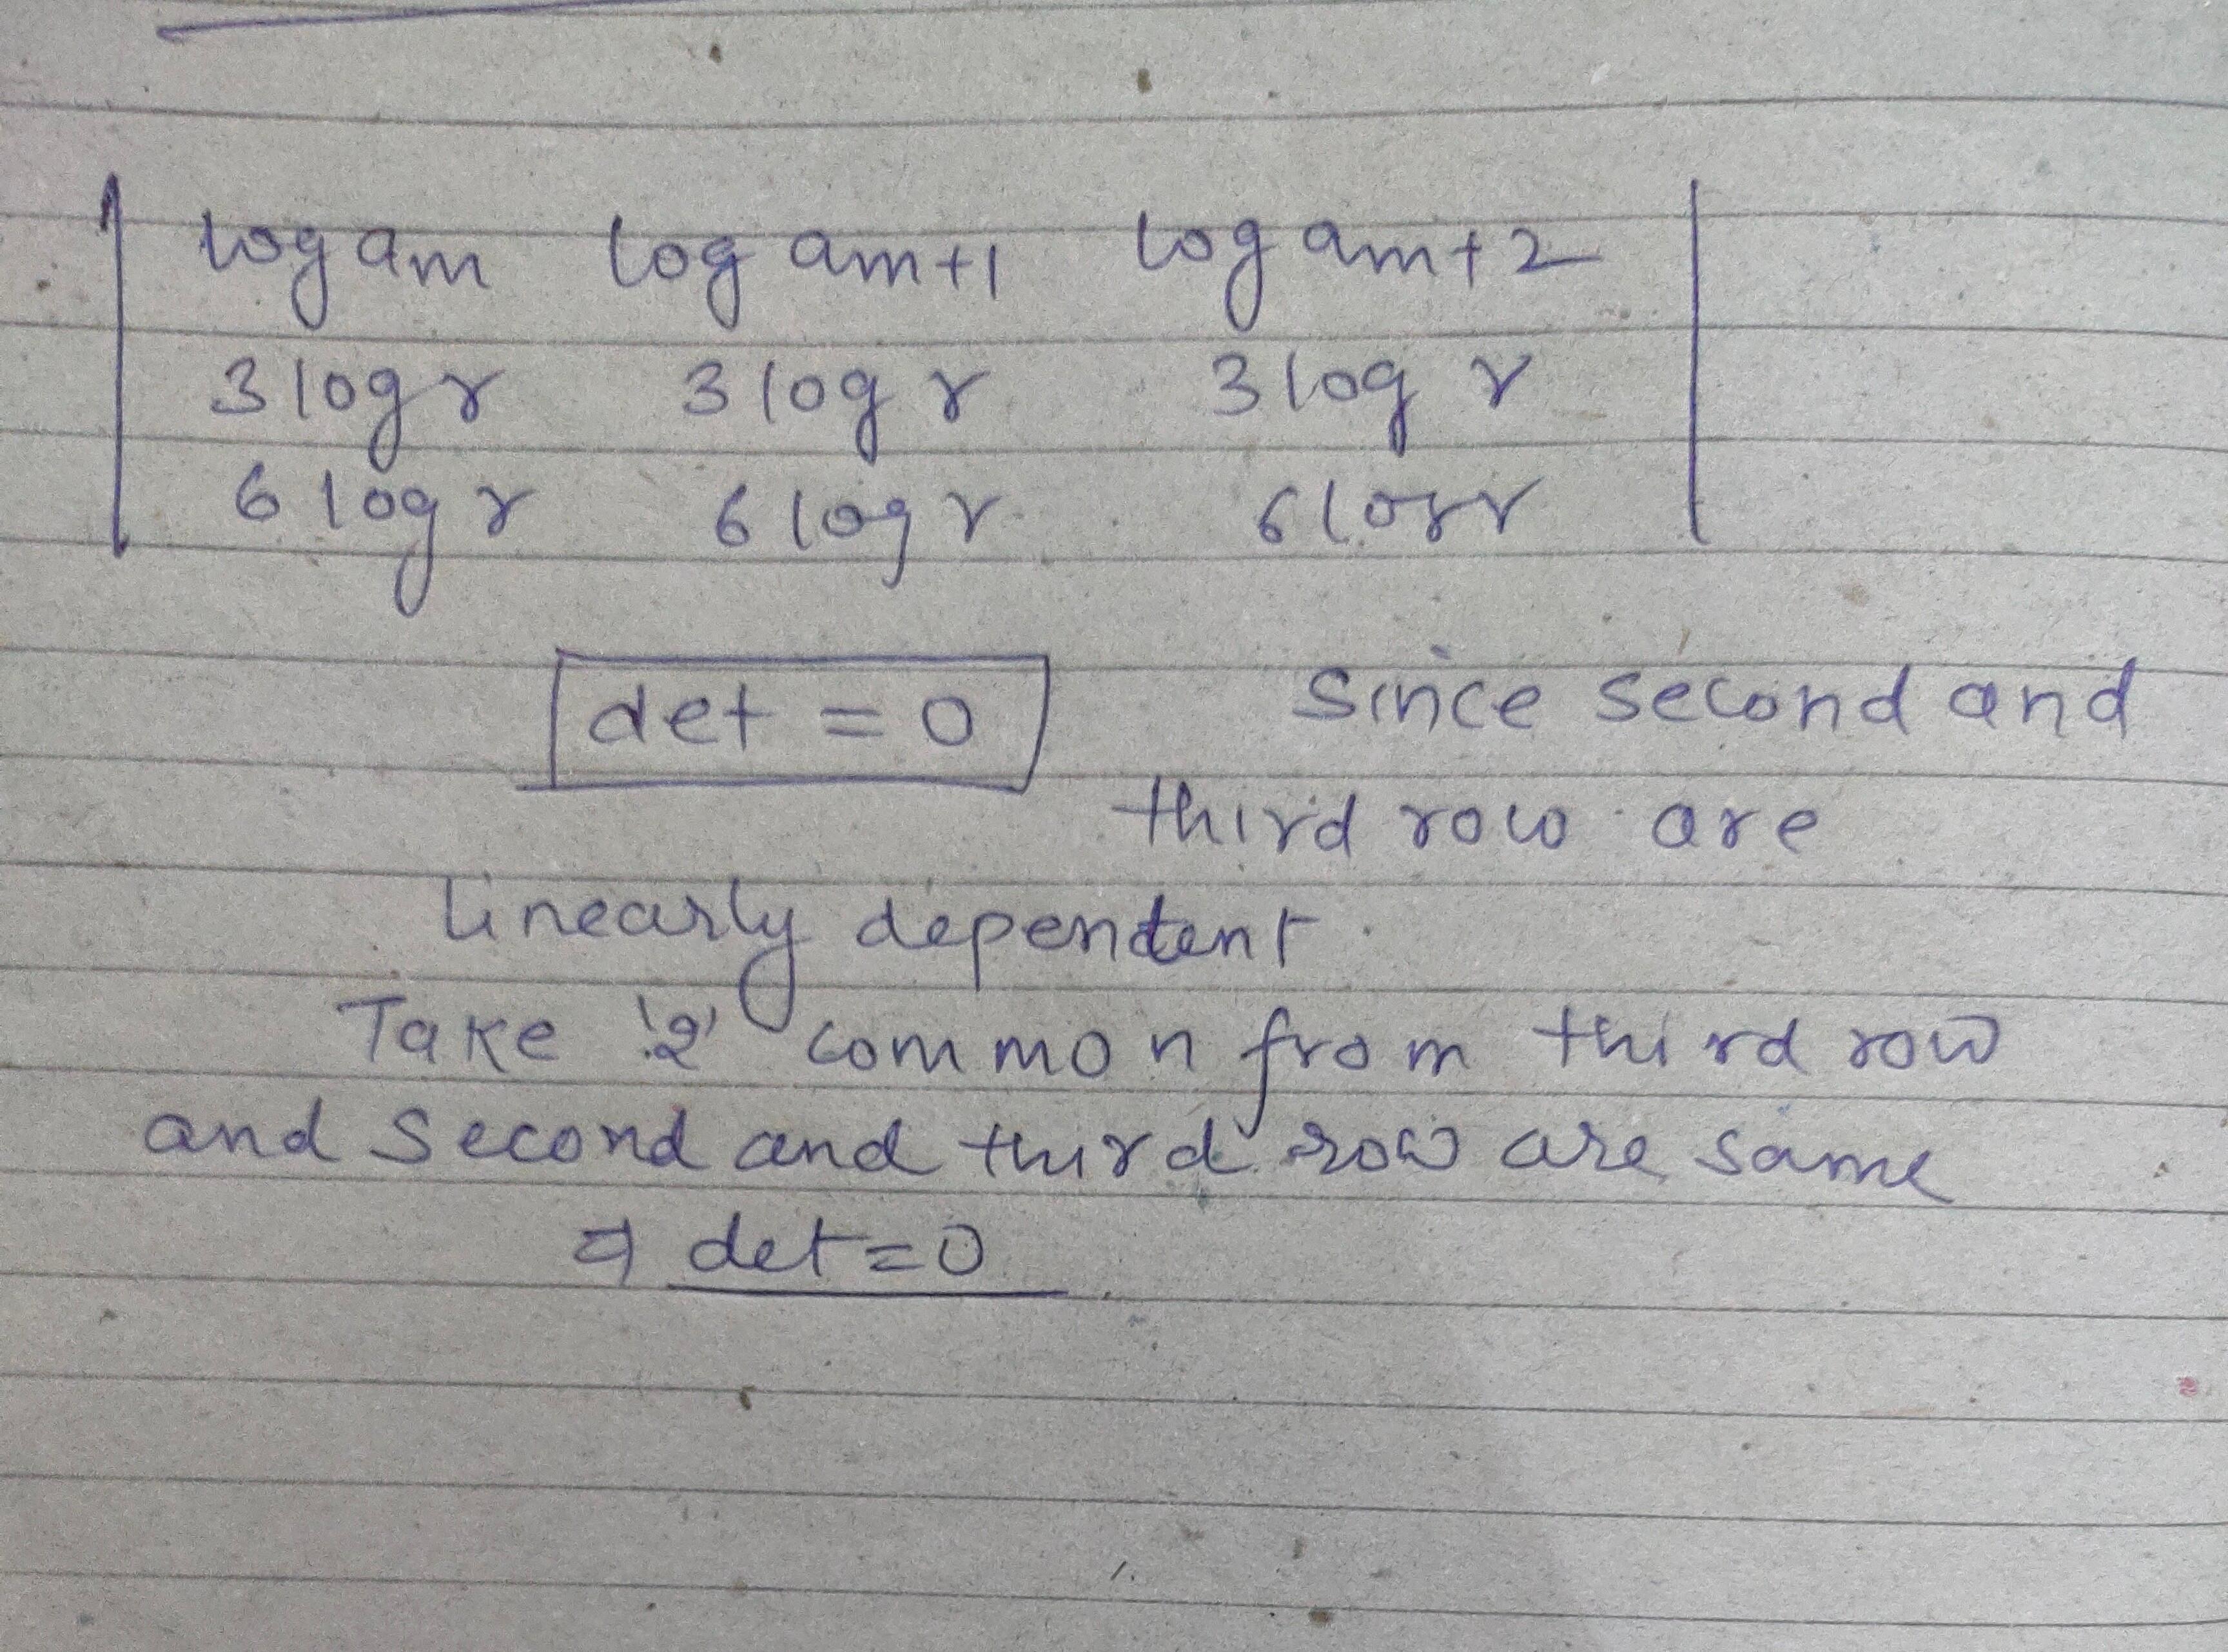 log am log am+1 log am+2
3 log r 3 log r 3 log r
6 log r 6 log r 6 log r
det = 0 since second and
third row are
linearly dependent.
Take '2' common from third row
and second and third row are same
⇒ det = 0